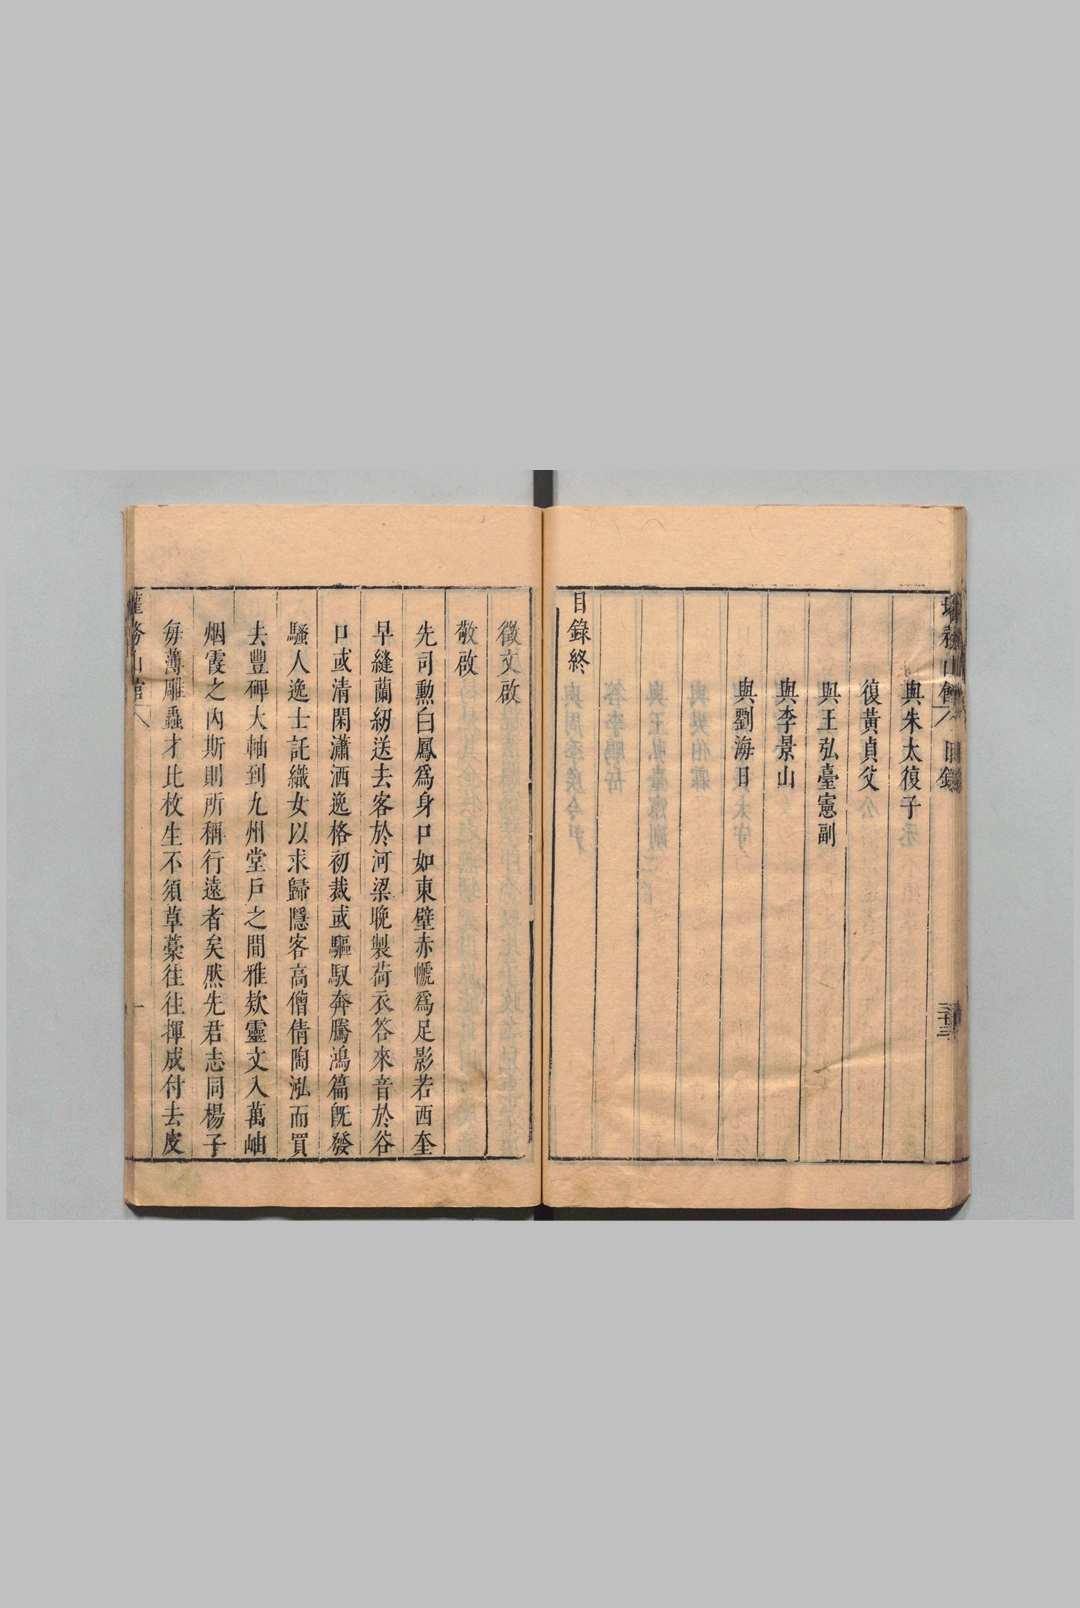 與朱太復子
復黃貞父
與王弘臺憲副
與李景山
與劉海日
目錄終
徵文啟
敬啟
先司勳白鳳為身口如東壁赤幰為足影若西奎
早縫蘭紉送去客於河梁晚製荷衣答來音於谷
口或清閑瀟洒逸格初裁或驅馭奔騰鴻篇旣發
騷人逸士託織女以求歸隱客高僧倩陶泓而買
去豐碑大軸到九州堂戶之間雅欵靈文入萬岫
烟霞之內斯則所稱行遠者矣然先君志同楊子
每薄雕蟲才比枚生不須草藁往往揮成付去皮
一